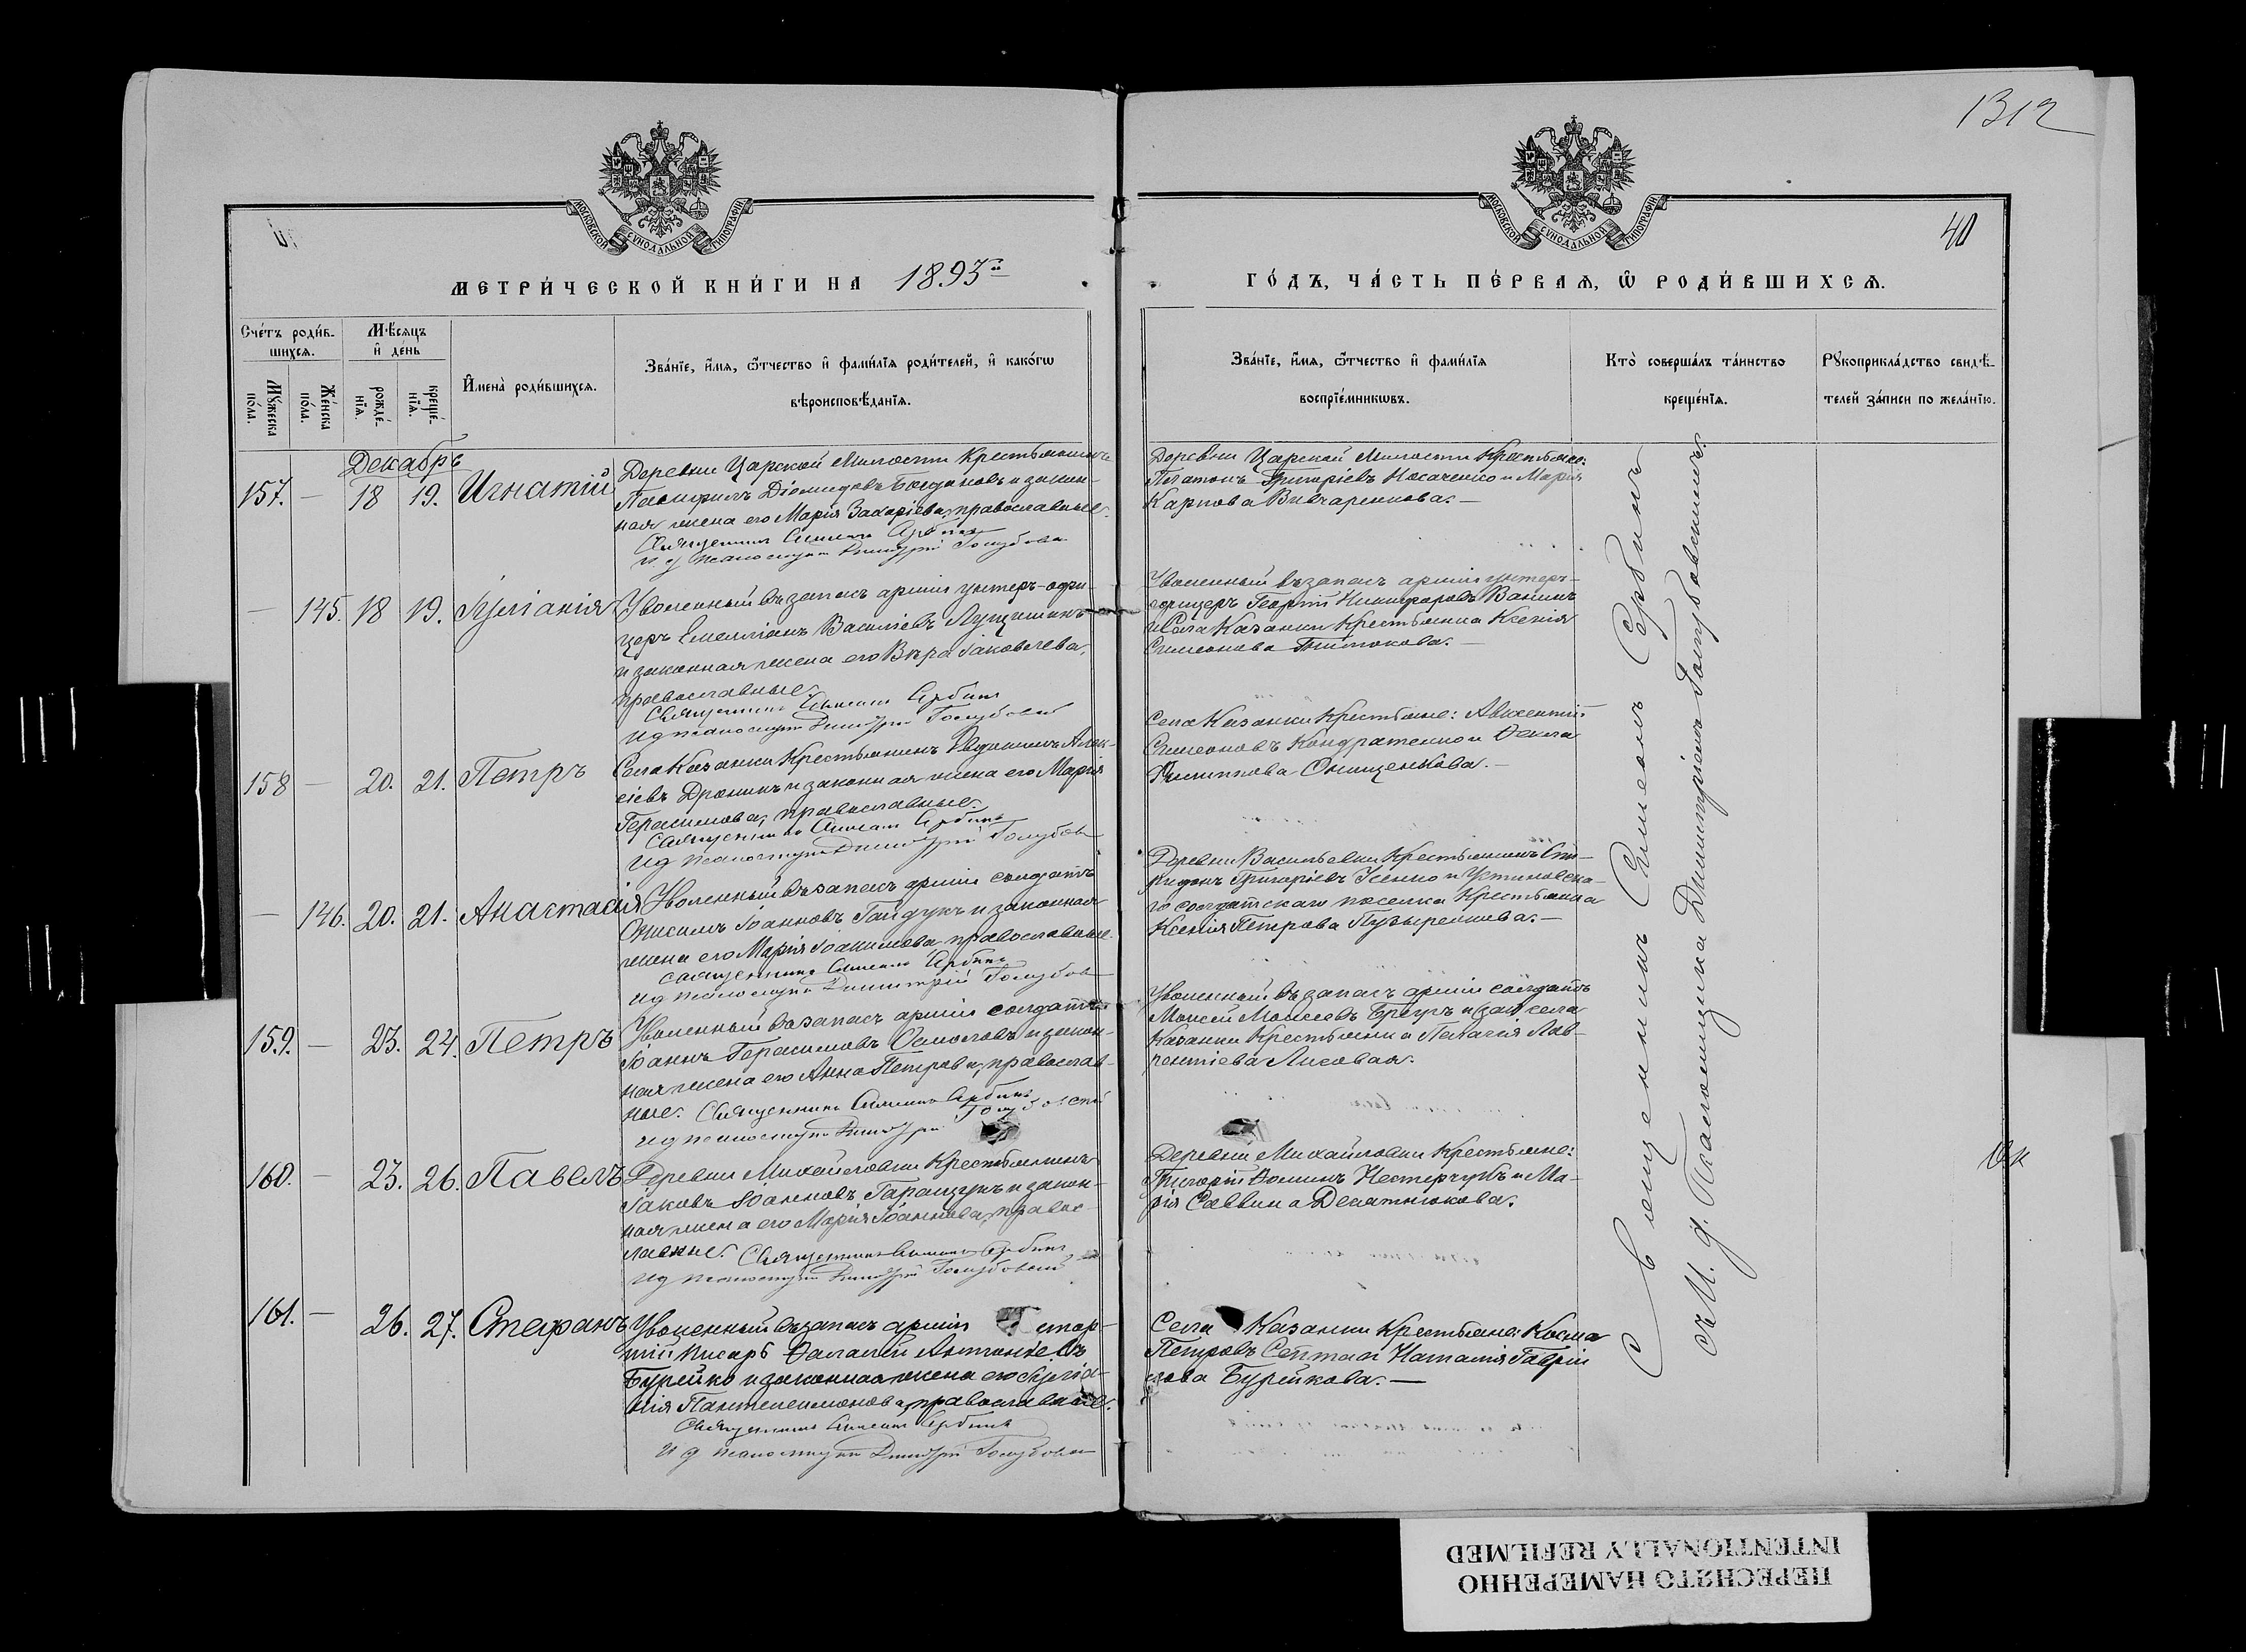 1312
МОСКОВСКОЙ СУНОДАЛЬНОЙ ТИПОГРАФІИ
МОСКОВСКОЙ СУНОДАЛЬНОЙ ТИПОГРАФІИ
40
МЕТРИ́ЧЕСКОЙ КНИ́ГИ НА 1893й
ГО́ДЪ, ЧА́СТЬ ПЕ́РВАѦ, Ѡ РОДИ́ВШИХСѦ.
Сче́тъ роди́в-
шихсѧ.
Мꙋ́жеска
по́ла.
Же́нска
по́ла.
Мѣ́сѧцъ
и҆ де́нь
рожде́-
нїѧ.
креще́-
нїѧ.
И҆мена̀ роди́вшихсѧ.
Зва́нїе, и҆́мѧ, ѻ҆́тчество и҆ фами́лїѧ роди́телей, и҆ како́гѡ
вѣроисповѣ́данїѧ.
Зва́нїе, и҆́мѧ, ѻ҆́тчество и҆ фами́лїѧ
воспрїе́мникѡвъ.
Кто̀ соверша́лъ та́инство
креще́нїѧ.
Рꙋкоприкла́дство свидѣ́-
телей за́писи по жела́нїю.
Декабрь
157. — 18 19. Игнатій
Деревни Царской Милости Крестьянинъ
Діомидовъ Богдановъ и закон-
ная жена его Марія Захаріева, православные.
Священникъ Симеонъ Сербинъ
И д псаломщика Димитрій Голубовскій
Деревни Царской Милости Крестьяне:
Платонъ Григоріевъ Носаченко и Марія
Карпова Вивчаренкова. —
— 145. 18 19. Іуліанія
Уволенный въ запасъ арміи унтеръ-офи-
церъ Емелліанъ Василіевъ
и законная жена его Вѣра Іаковлева,
православные.
Священникъ Симеонъ Сербинъ
И д псаломщика Димитрій Голубовскій
Уволенный въ запасъ арміи унтеръ-
офицеръ Георгій Никифоровъ Ванинъ
и Села Казанки Крестьянка Ксенія
Симеонова
158 — 20. 21. Петръ
Села Казанки Крестьянинъ Евдокимъ Алек-
сіевъ и законная жена его Марія
Герасимова, православные.
Священникъ Симеонъ Сербинъ
И д псаломщика Димитрій Голубовскій
Села Казанки Крестьяне: Авксентій
Симеоновъ Кондратенко и Ѳекла
Филиппова Онищенкова. —
— 146. 20. 21. Анастасія
Уволенный въ запасъ арміи солдатъ
Онисимъ Іоанновъ Гайдукъ и законная
жена его Марія Іоакимова, православные.
Священникъ Симеонъ Сербинъ
И д псаломщика Димитрій Голубовскій
Деревни Васильевки Крестьянинъ Спи-
ридонъ Григоріевъ Усенко и Устиновска-
го солдатскаго поселка Крестьянка
Ксенія Петрова Пузыренкова. —
159. — 23. 24. Петръ
Уволенный въ запасъ арміи солдатъ
Іоаннъ Герасимовъ и закон-
ная жена его Анна Петрова, православ-
ные. Священникъ Симеонъ Сербинъ
И д псаломщика Димитрій Голубовскій
Уволенный въ запасъ арміи солдатъ
Моисей Моисеевъ села
Казанки Крестьянка Пелагія Лав-
рентіева Лисовая.
160. — 23. 26. Павелъ
Деревни Михайловки Крестьянинъ
Іаковъ Іоанновъ Гаращукъ и закон-
ная жена его Марія Іоаннова, правос-
лавные. Священникъ Симеонъ Сербинъ
И д псаломщика Димитрій Голубовскій
Деревни Михайловки Крестьяне:
Григорій Ѳоминъ Нестерчукъ и Ма-
рія Саввина
161. — 26. 27. Стефанъ
Уволенный въ запасъ арміи стар-
шій писарь Ѳалалей Антоніевъ
Бурейко и законная жена его Іуліа-
нія Пантелеимонова, православные.
Священникъ Симеонъ Сербинъ
И д псаломщика Димитрій Голубовскій
Села Казанки Крестьяне: Косма
Петровъ и Наталія Гаврі-
лова Бурейкова. —
Священникъ Симеонъ Сербинъ
съ И. д. Псаломщика Димитріемъ Голубовскимъ.
ПЕРЕСНЯТО НАМЕРЕННО
INTENTIONALLY REFILMED